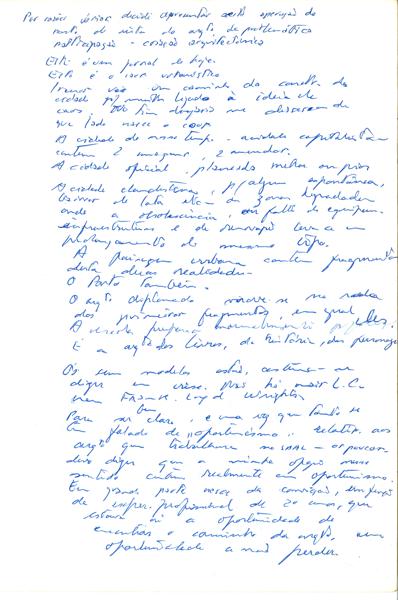 Por razões várias decidi apresentar esta operação do
ponto de vista do arqto de problemática
participação - criação arquitectónica
Este é um jornal de hoje.
Este é o caos urbanístico
cidade p/ muitos ligada à ideia de
caos,
que tudo nasce o caos
A cidade do nosso tempo - sociedade capitalista
contém 2 imagens, 2 mundos.
A cidade oficial - planeada melhor ou pior
A cidade clandestina, p/ alguns espontânea,
bairros de lata, ilhas ou zonas degradadas
onde a obsolescência, ou falta de equipam.
infraestruturas e de renovação leva a um
prolongamento do mesmo tipo.
A paisagem urbana contém fragmentos
desta duas realidades
O Porto também.
O arqto diplomado move-se na
dos primeiros fragmentos, em geral
A escola prepara normalmente p/ eles.
É a arqta dos livros, da história, dos personagens
Os seus modelos estão, costuma-se
dizer em crise. Não há mais L.C.
nem Frank Loyd Wright
bem
Para ser claro, e uma vez que tanto se
tem falado de "oportunismo" relativo aos
arqtos que trabalham no SAAL -
devo dizer que a minha opção nesse
sentido contém realmente um oportunismo.
Em grande parte nasce da convicção, em função
de exper. profissional de 20 anos, que
estava aí a oportunidade de
encontrar o caminho da arqta, uma
oportunidade a não perder.